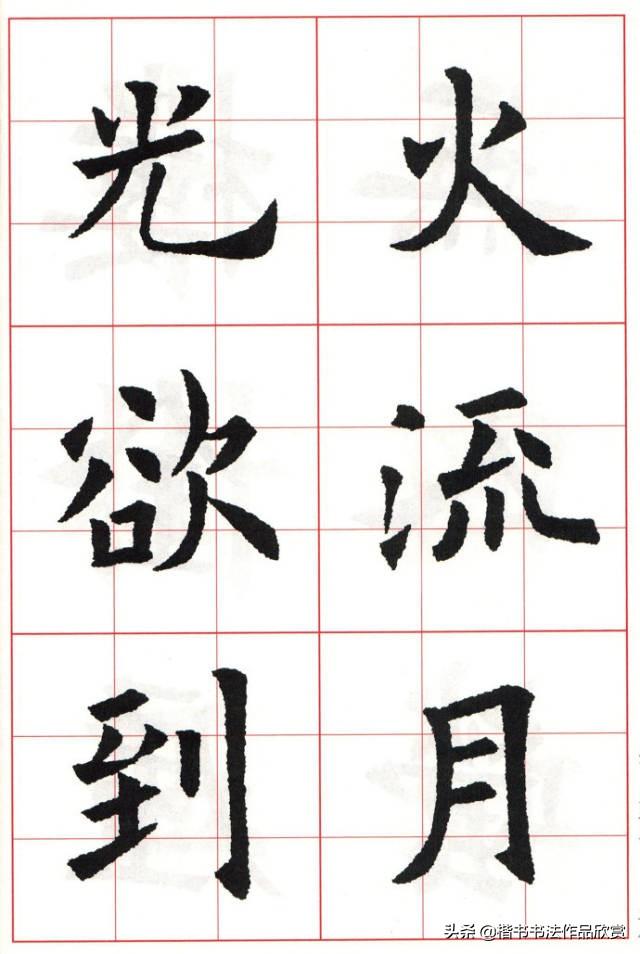 火流月
光欲到
头条 @楷书书法作品欣赏